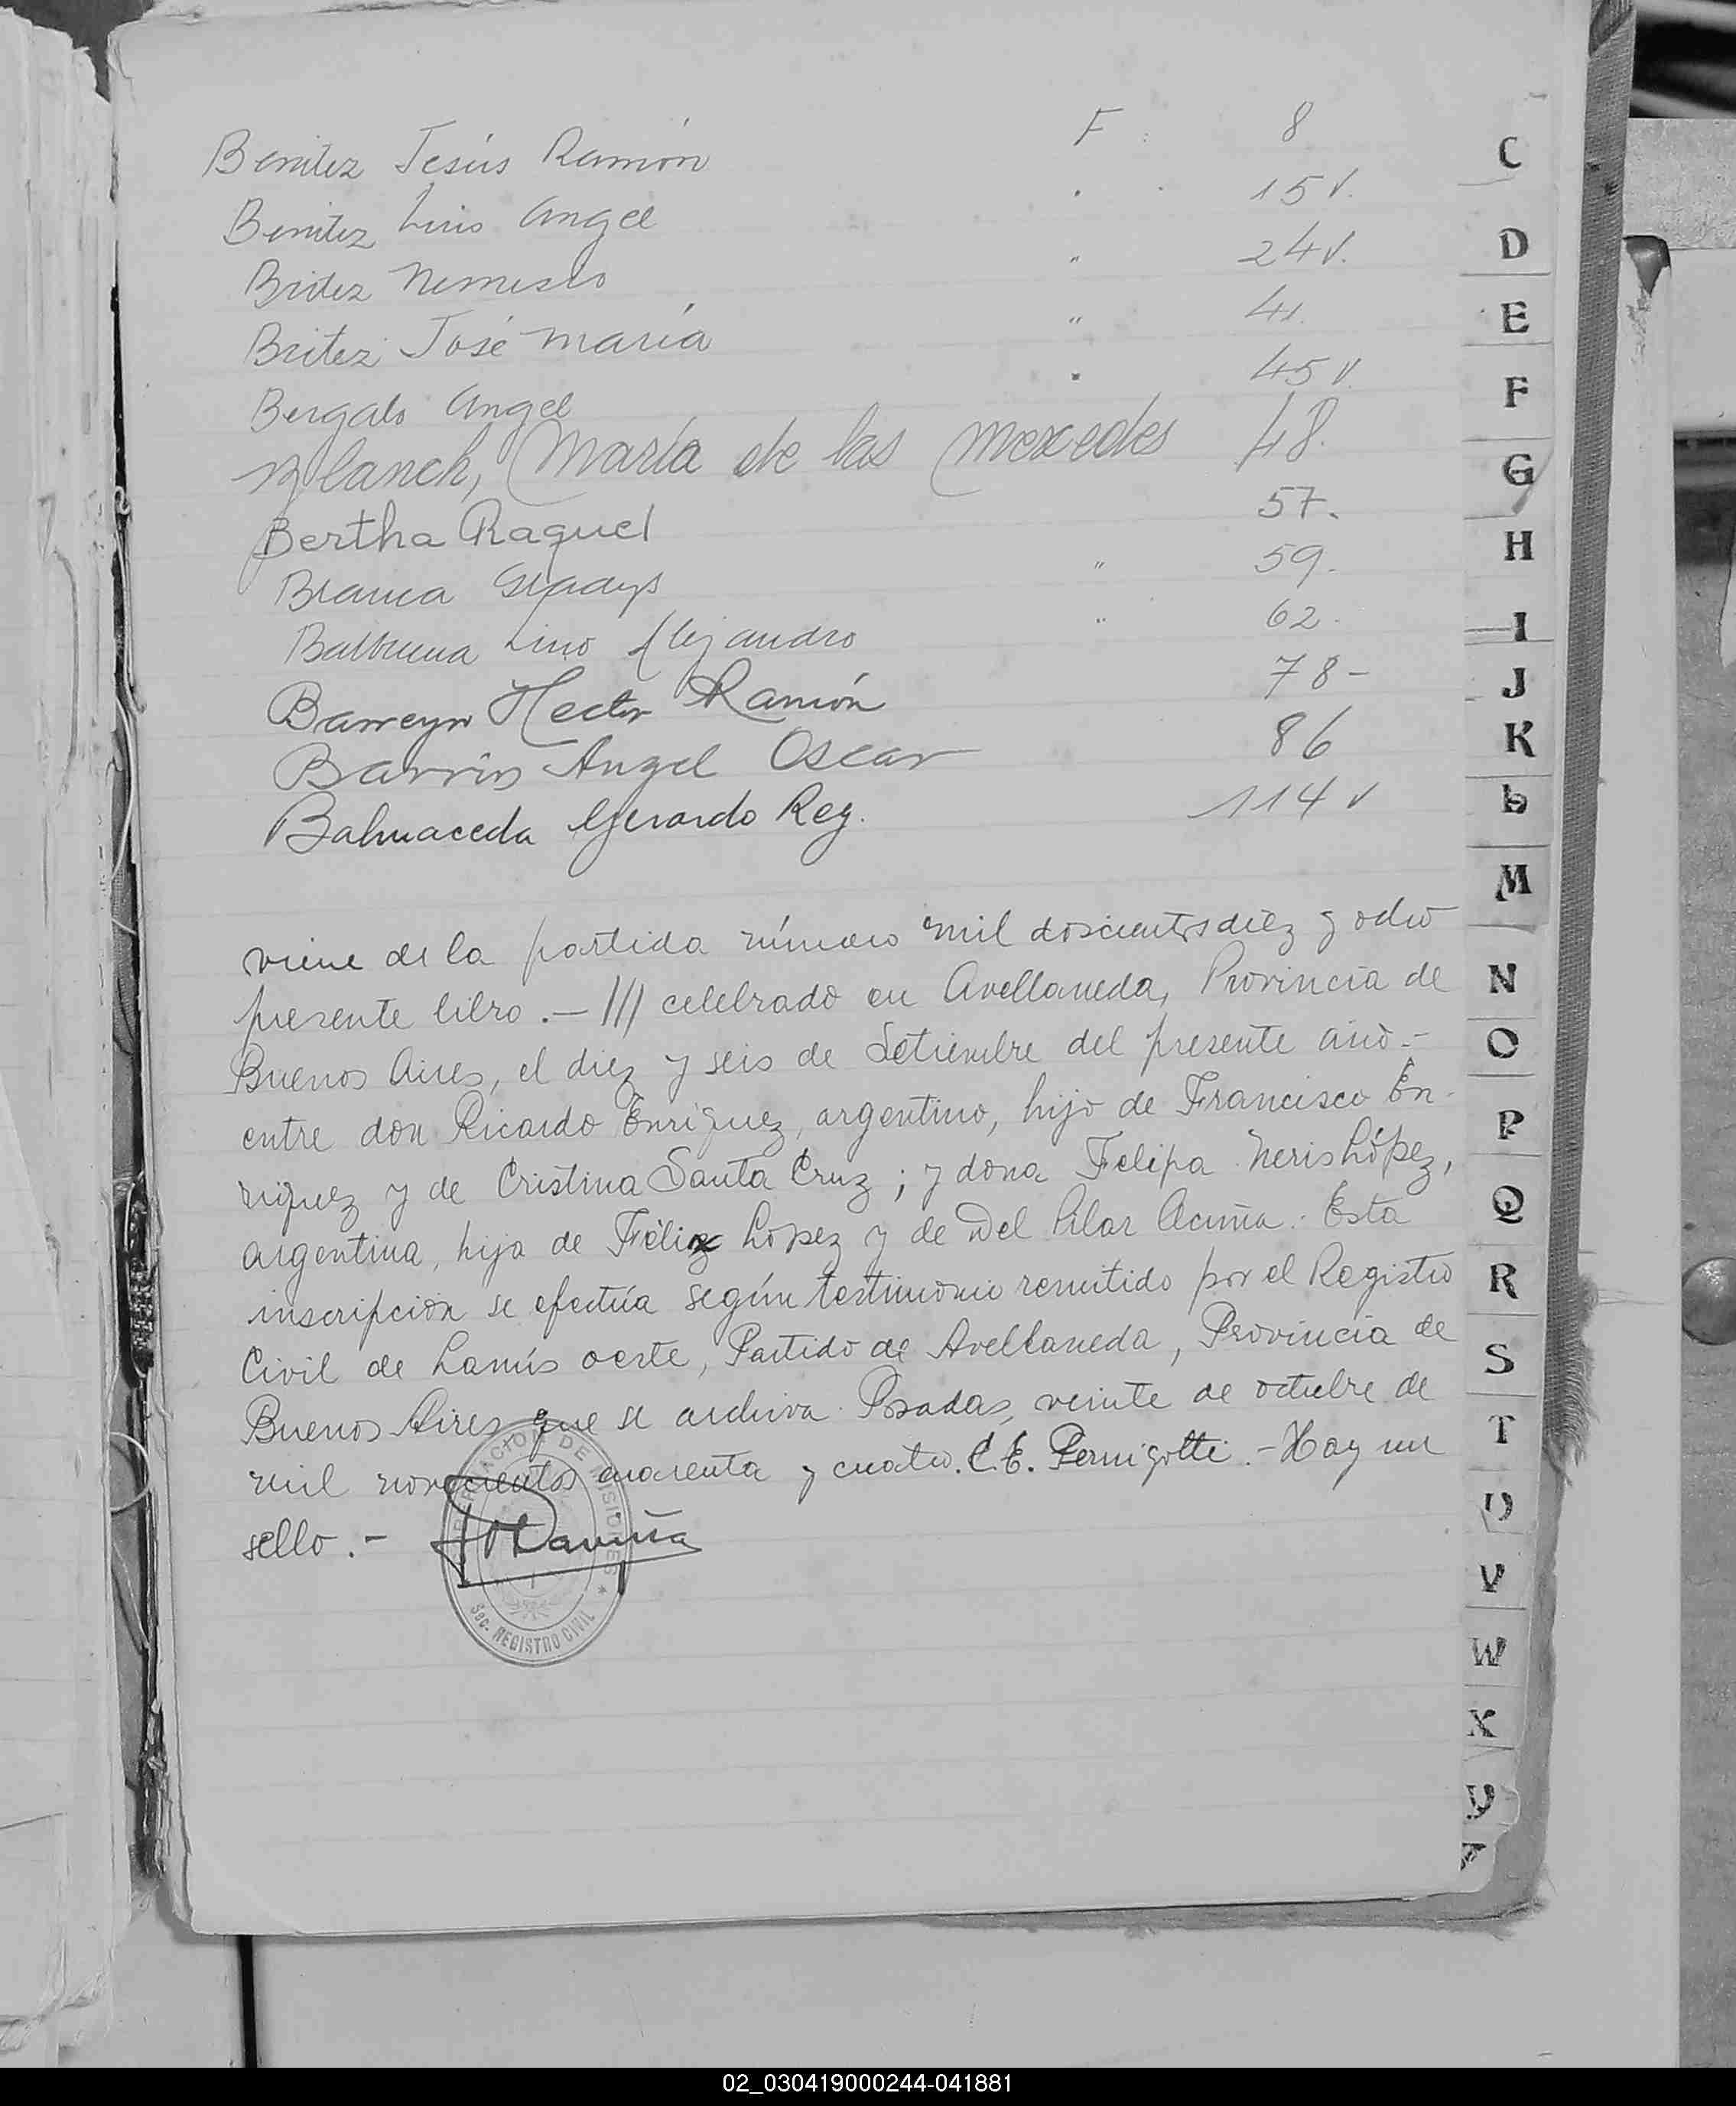 Benitez Jesús Ramón F 8
Benitez Luis Angel " 15 v.
Britez Nemesio " 24 v.
Britez José maría " 41.
Bergalo Angel " 45 v.
Blanch, María de las Mercedes 48.
Bertha Raquel 57.
Branca Gladys " 59.
Balbuena Lino Alejandro " 62.
Barreyro Hector Ramón 78-
Barrios Angel Oscar 86
Balmaceda Gerardo Rey. 114 v
viene de la partida número mil doscientos diez y ocho
presente libro.- /// celebrado en Avellaneda, Provincia de
Buenos Aires, el diez y seis de Setiembre del presente año.-
entre don Ricardo Enriquez, argentino, hijo de Francisco En-
riquez y de Cristina Santa Cruz; y dona Felipa Neris López,
argentina, hija de Félix López y de Del Pilar Acuña.- Esta
inscripción se efectúa según testimonio remitido por el Registro
Civil de Lanús oeste, Partido de Avellaneda, Provincia de
Buenos Aires que se archiva. Posadas, veinte de octubre de
mil novecientos cuarenta y cuatro. C. E. Pernigotti.- Hay un
sello.-
GOBERNACION DE MISIONES
Sec. REGISTRO CIVIL
C
D
E
F
G
H
I
J
K
L
M
N
O
P
Q
R
S
T
U
V
W
X
Y
02_030419000244-041881